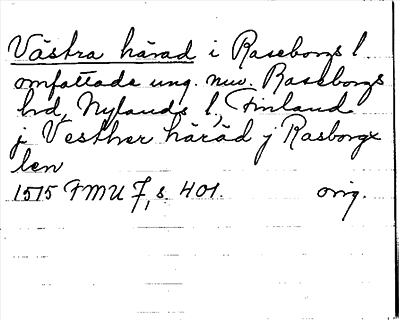 Västra härad i Raseborgs l
omfattade ung. nuv. Raseborgs
hd, Nylands l, Finland
j Vesther häräd j Rasborgx
len
1515 FMU 7, s. 401. orig.